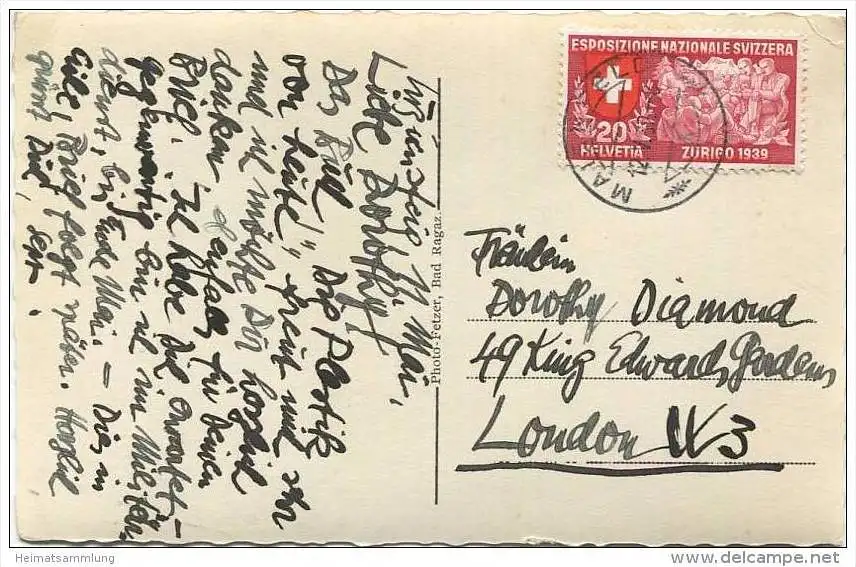 ESPOSIZIONE NAZIONALE SVIZZERA
20
HELVETIA ZURIGO 1939
MAI
11. Mai,
Liebe Dorothy!
Das Buch „Die Plastik
von heute“, freut mich sehr
und ich möchte Dir herzlich
danken für Deinen
Brief. Ich habe
gegenwärtig bin ich im Militär-
dienst, bis Ende Mai. – Dies in
Eile, Brief folgt näher. Herzlich
grüsst Dich,
Photo-Fetzer, Bad Ragaz.
Fräulein
Dorothy Diamond
49 King Edwards Gardens
London W3
Heimatsammlung
delcampe.net